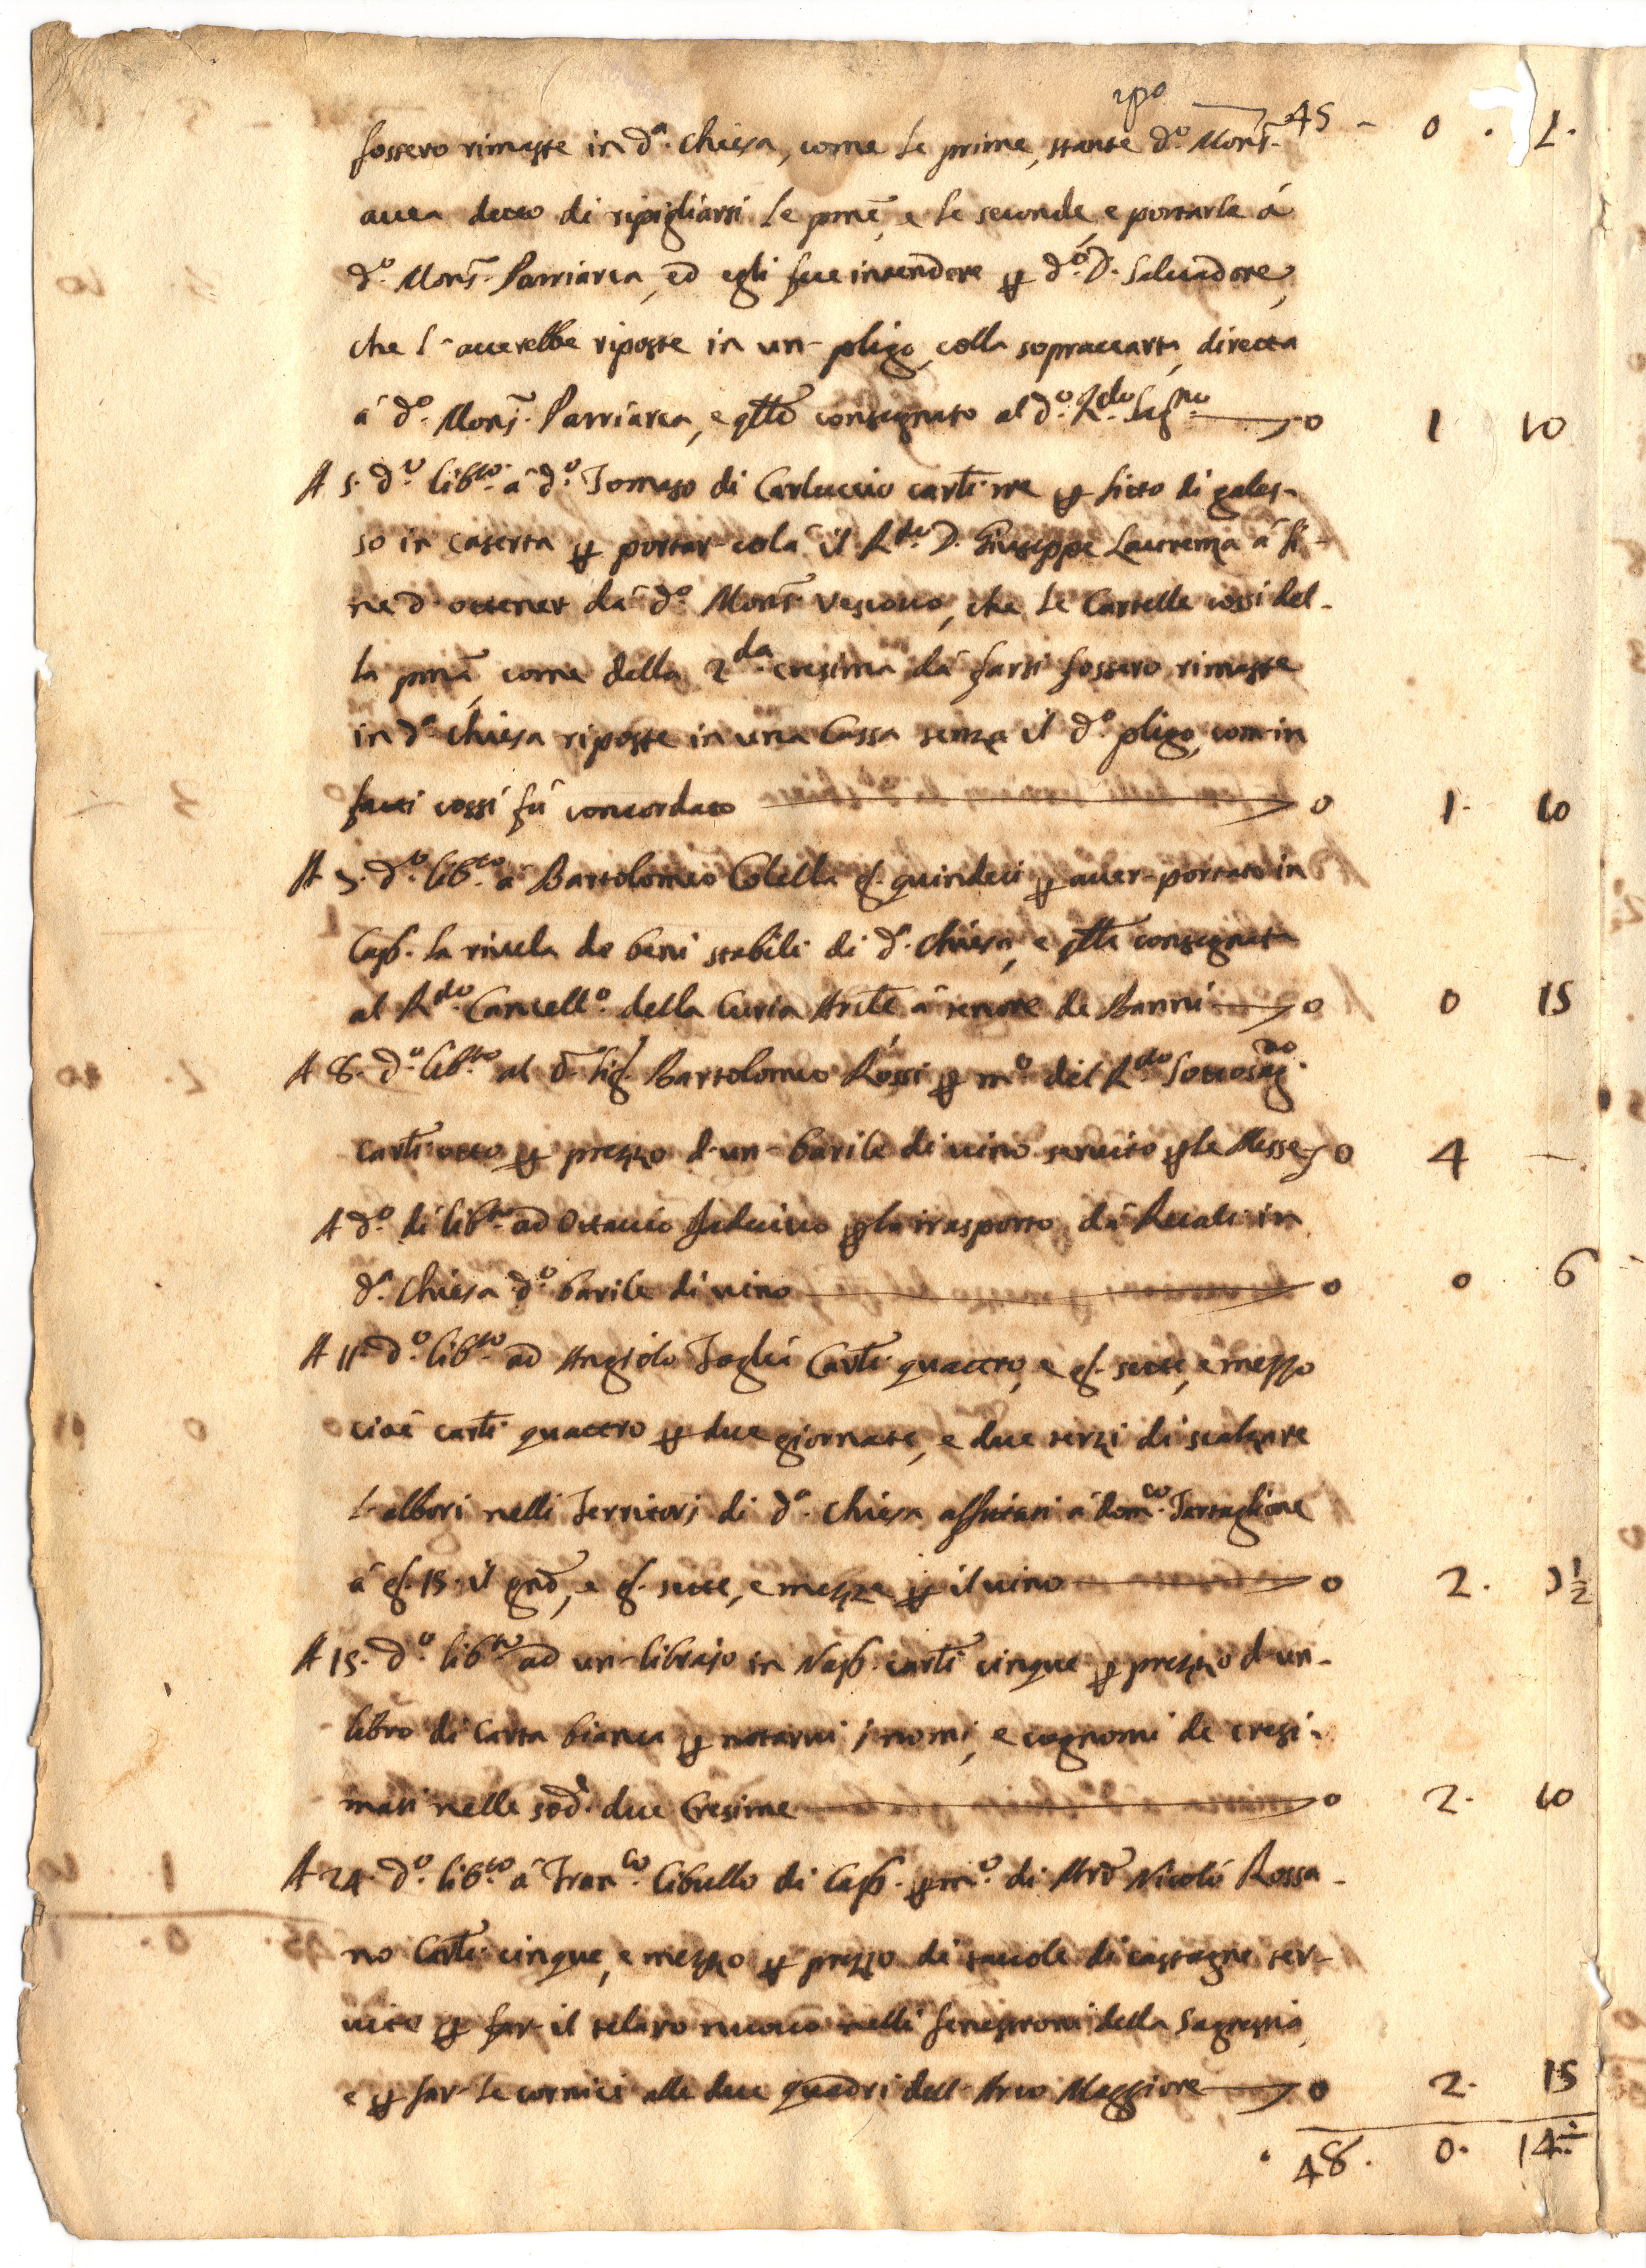 rpo 45 - 0 . 1.
fossero rimaste in d.ª Chiesa, come le prime, stante d.º Mons.
avea detto di ripigliarsi le pme, e le seconde, e portarle á
d.º Mons. Patriarca, ed egli fece intendere p d.º D. Salvadore,
che l'averebbe riposte in un pligo colla sopraccarta, diretta
á d.º Mons. Patriarca, e qllo consegnato al d.º R.do Sag.no 0 1 10
A 5. d.º lib.to á d.º Tomaso di Carluccio carti tre p fitto di gales-
so in Caserta p portar colá il R.do D. Giuseppe Laurenza á fi-
ne d'ottener dá d.º Mons. Vescovo, che le Cartelle cossí del-
la pma, come della 2.da cresima dá farsi fossero rimaste
in d.ª Chiesa riposte in una Cassa senza il d.º pligo, com in
fatti cossí fú concordato 0 1. 10
A 5. d.º lib.to á Bartolomeo Colella g. quindeci p aver portato in
Cap. la rivela de beni stabili di d.ª Chiesa, e qlla consegnata
al R.do Cancell.º della Curia Arcile á tenore de Banni 0 0 15
A 8. d.º lib.to al d. Sig. Bartolomeo Rossi p m.º del R.do Sottosag.no
carti otto p prezzo d'un barile di vino servito p le Messe 0 4 —
A d.º dí lib.to ad Ottavio p lo trasporto dá Recale in
d.ª Chiesa d.º barile di vino 0 0 6
A 11. d.º lib.to ad Angiolo Foglia Carti quattro, e g. sette, e mezzo
cioé carti quattro p due giornate, e due terzi di scalzare
l'albori nelli Territorj di d.ª Chiesa affittati á Dom.co Tartaglione
á g. 15. il gno, e g. sette, e mezzo p il vino 0 2. 7½
A 15. d.º lib.to ad un librajo in Nap. carti cinque p prezzo d'un
libro di Carta bianca p notarvi i nomi, e cognomi de cresi-
mati nelle sod. due Cresime 0 2. 10
A 24. d.º lib.to á Fran.co Cibullo di Cap. p m.º di Mro Nicoló Rossa-
no Carti cinque, e mezzo p prezzo di tavole di castagne ser-
vite p far il telaro nuovo nelli fenestroni della Sagrestia,
e p far le cornici alle due quadri dell'Arco Maggiore 0 2. 15
48. 0. 14½